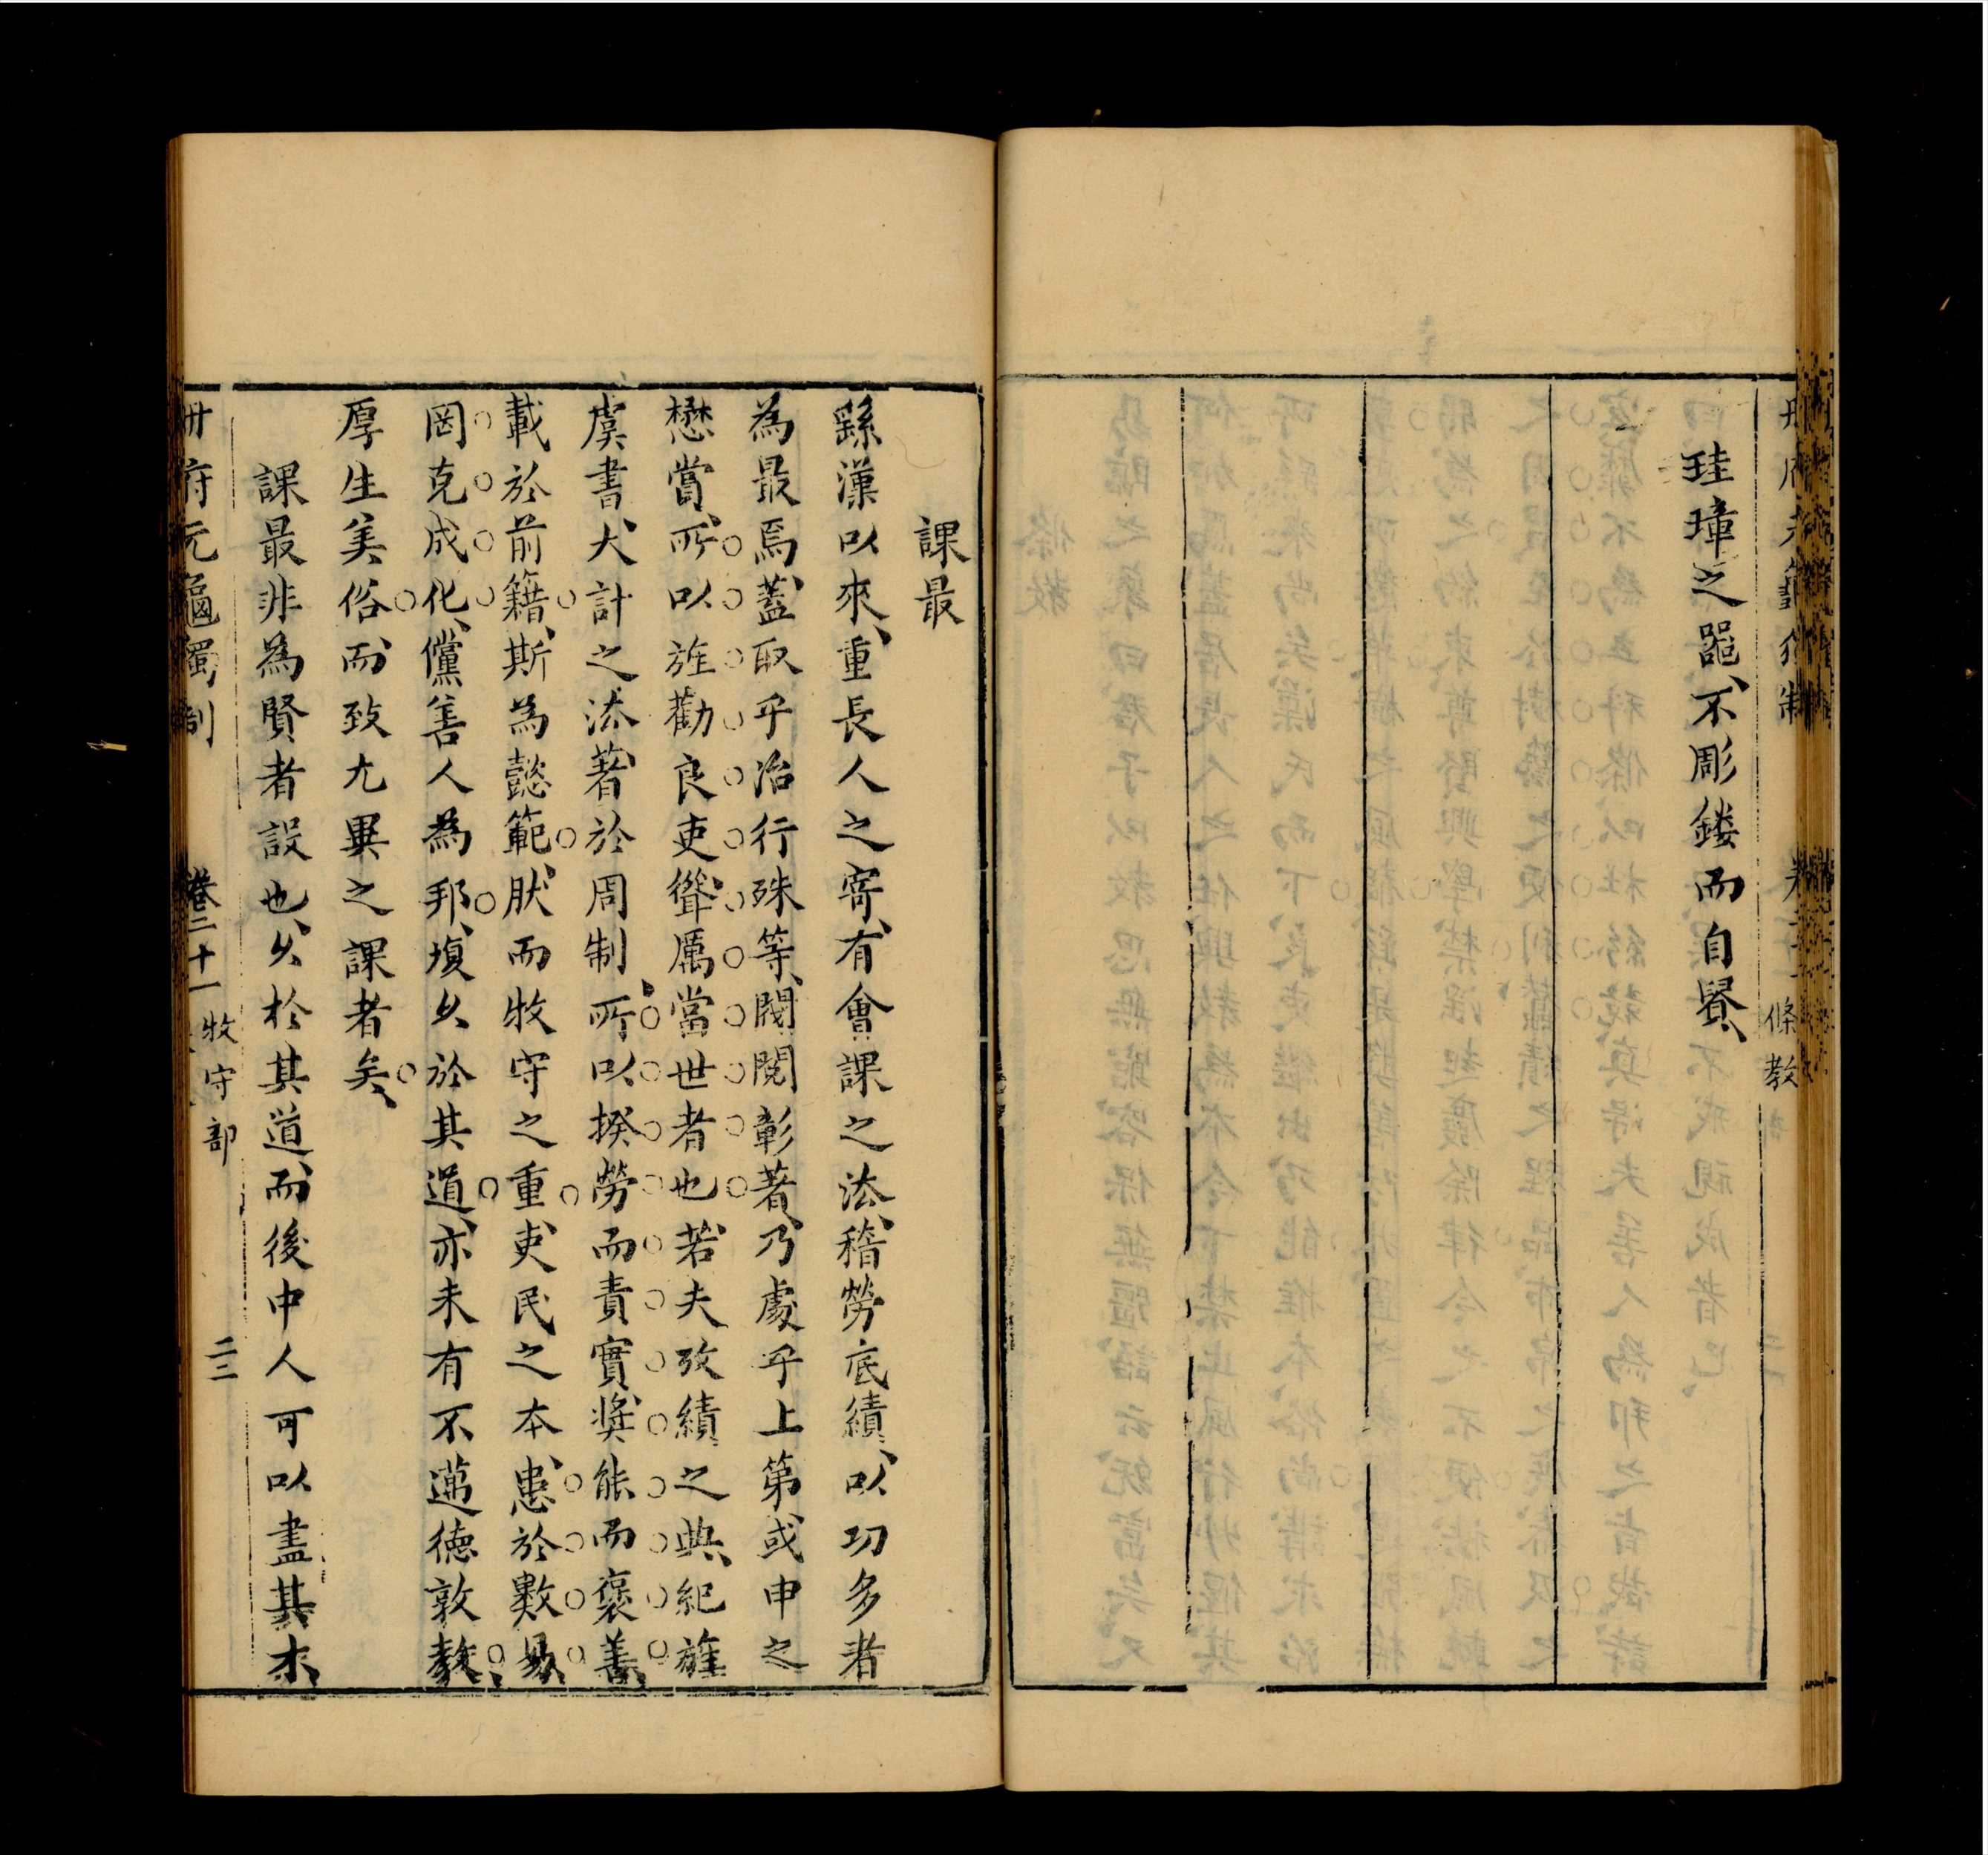 珪璋之器不彫鏤而自賢
條教
課最
繇漢以來重長人之寄有會課之法稽勞底績以功多者
為最焉蓋取乎治行殊等閥閱彰著乃處乎上第或申之
懋賞所以旌勸良吏聳厲當世者也若夫攷績之典紀旌
虞書大計之法著於周制所以揆勞而責實奨能而褒善
載於前籍斯為懿範肰而牧守之重吏民之本患於數易
罔克成化儻善人為邦填久於其道亦未有不邁德敦教
厚生美俗而致尤異之課者矣
課最非為賢者設也久於其道而後中人可以盡其才
冊府元龜獨制
卷三十一
牧守部
二三